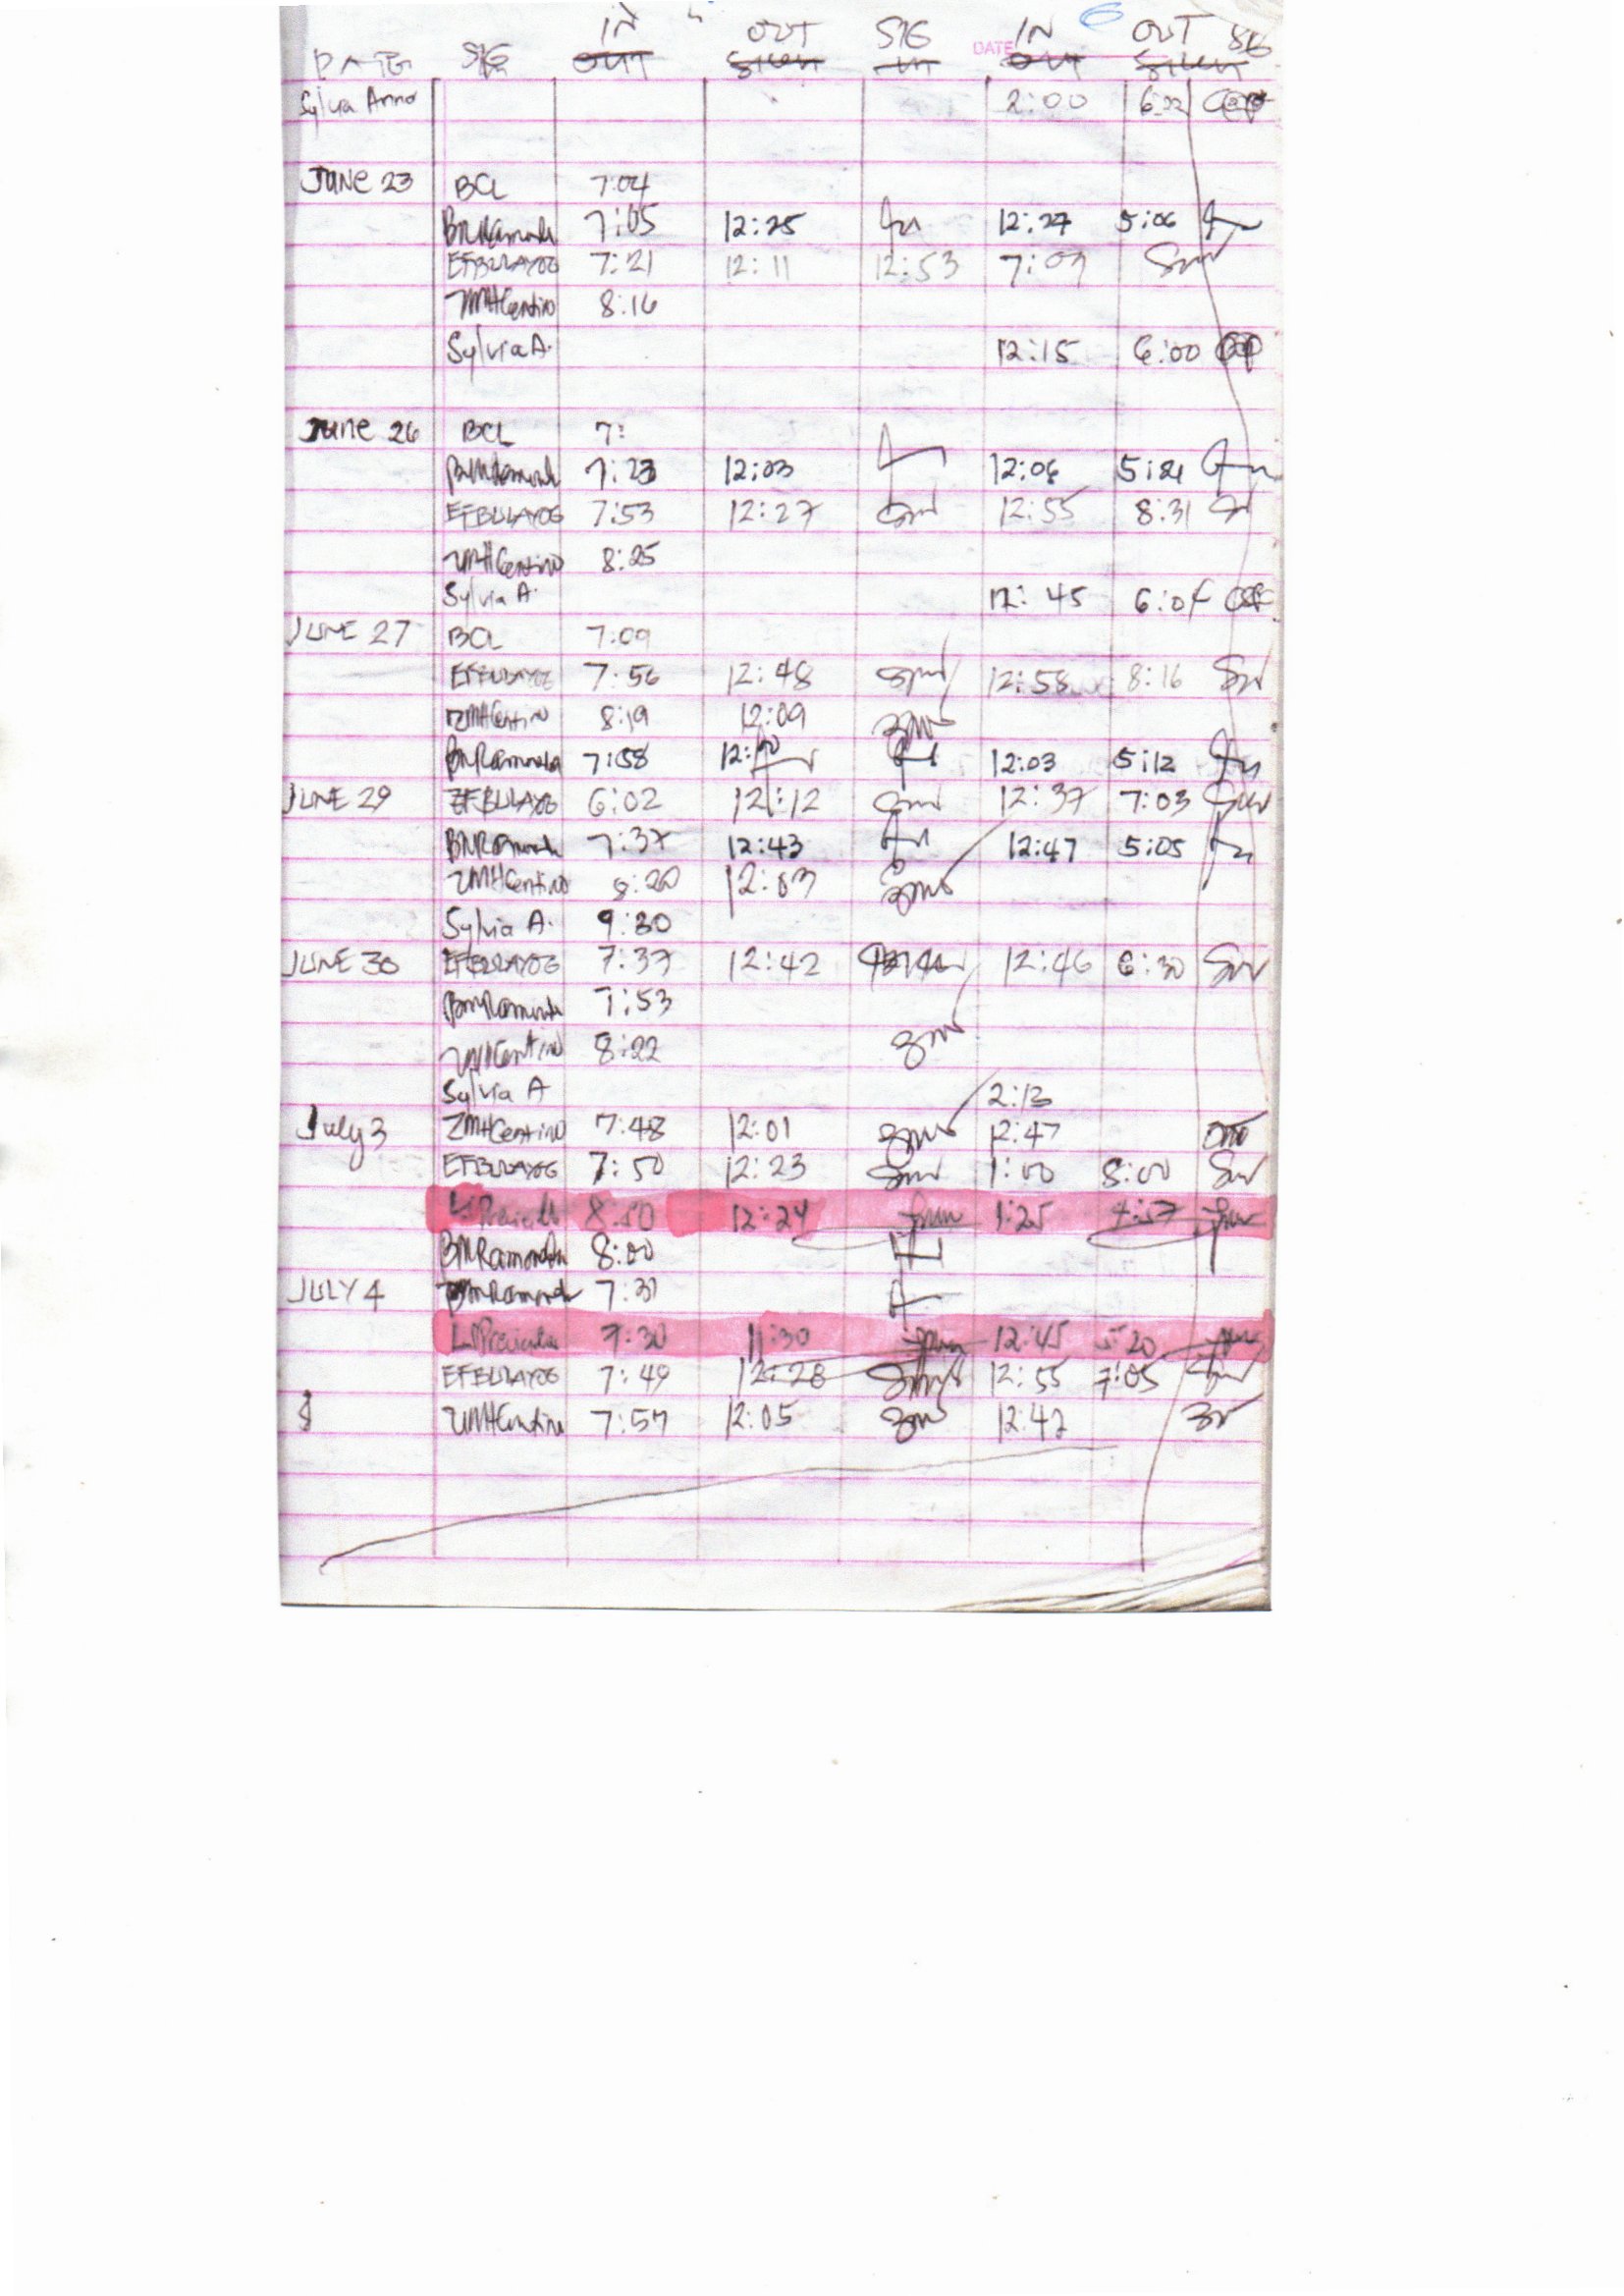 IN OUT SIG DATE IN OUT SIG
DATE SIG OUT OUT
Sylvia Anno 2:00 6:02
JUNE 23 BCL 7:04
BNRamonda 7:05 12:25 12:27 5:06
EFBULAYOG 7:21 12:11 12:53 7:07
ZMHCentino 8:16
Sylvia A. 12:15 6:00
June 26 BCL 7:
BNRamonda 7:23 12:03 12:06 5:21
EFBULAYOG 7:53 12:27 12:55 8:31
ZMHCentino 8:25
Sylvia A. 12:45 6:05
JUNE 27 BCL 7:09
EFBULAYOG 7:56 12:48 12:58 8:16
ZMHCentino 8:19 12:09
BNRamonda 7:58 12:03 5:12
JUNE 29 EFBULAYOG 6:02 12:12 12:37 7:03
BNRamonda 7:37 12:43 12:47 5:05
ZMHCentino 8:20 12:03
Sylvia A. 9:30
JUNE 30 EFBULAYOG 7:37 12:42 12:46 6:30
BNRamonda 7:53
ZMHCentino 8:22
Sylvia A 2:13
July 3 ZMHCentino 7:48 12:01 12:47
EFBULAYOG 7:50 12:23 1:00 8:00
8:50 12:24 1:25 4:57
BNRamonda 8:00
JULY 4 BNRamonda 7:31
7:30 11:30 12:45 5:20
EFBULAYOG 7:49 12:28 12:55 7:05
ZMHCentino 7:57 12:05 12:42